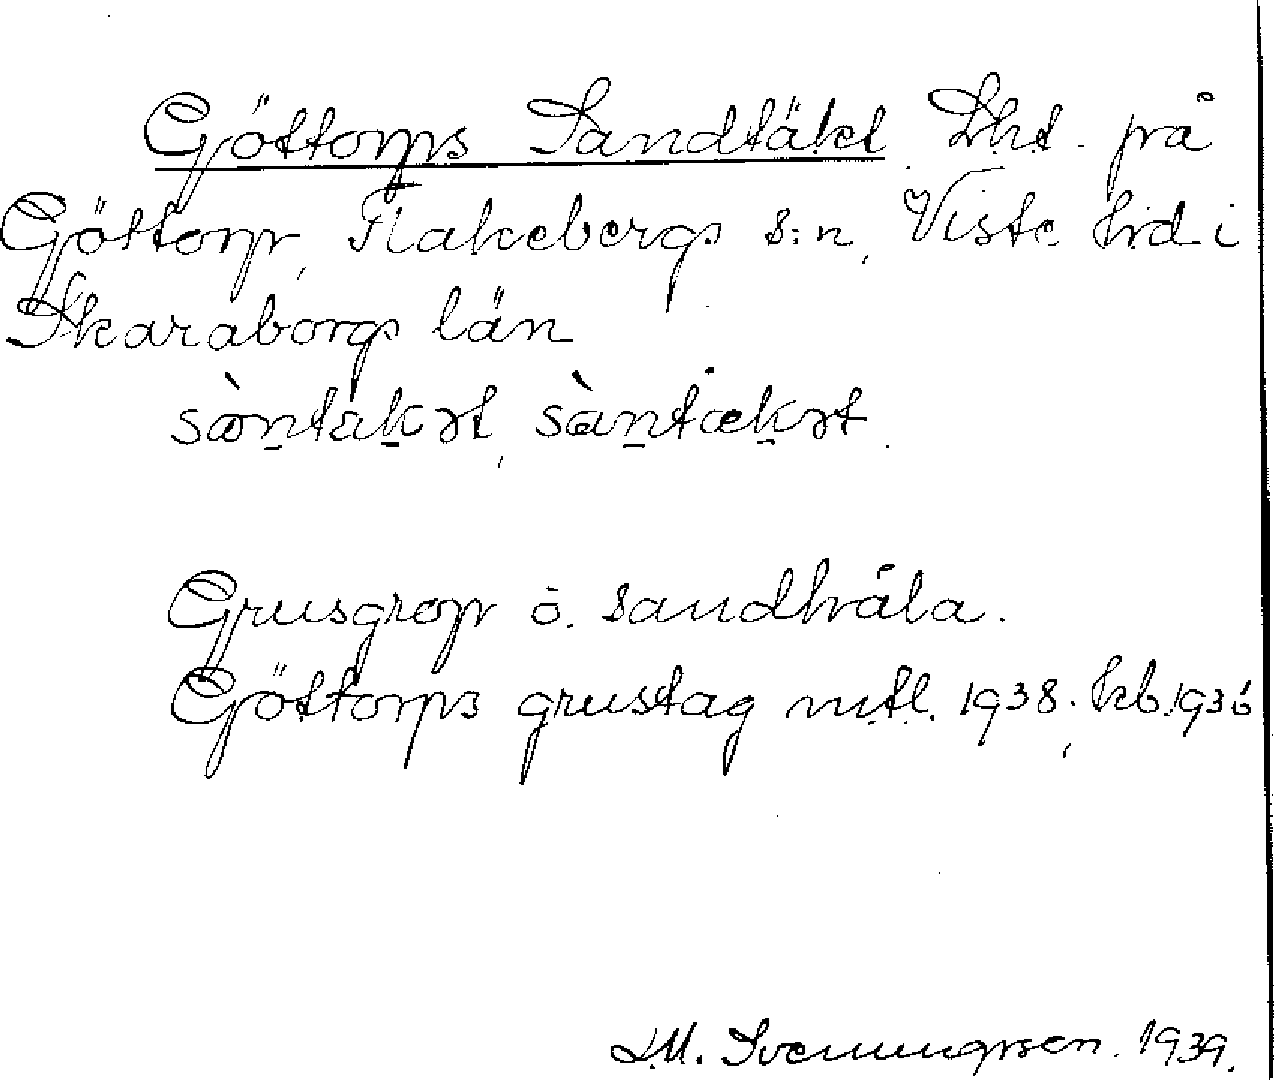 Göttorps Sandtäkt. Lht. på
Göttorp, Flakebergs s:n, Viste hrd i
Skaraborgs län
sàntækət, sàntækət.
Grusgrop o. sandhåla.
Göttorps grustag mtl. 1938. kb. 1936
Svenungsson. 1939.